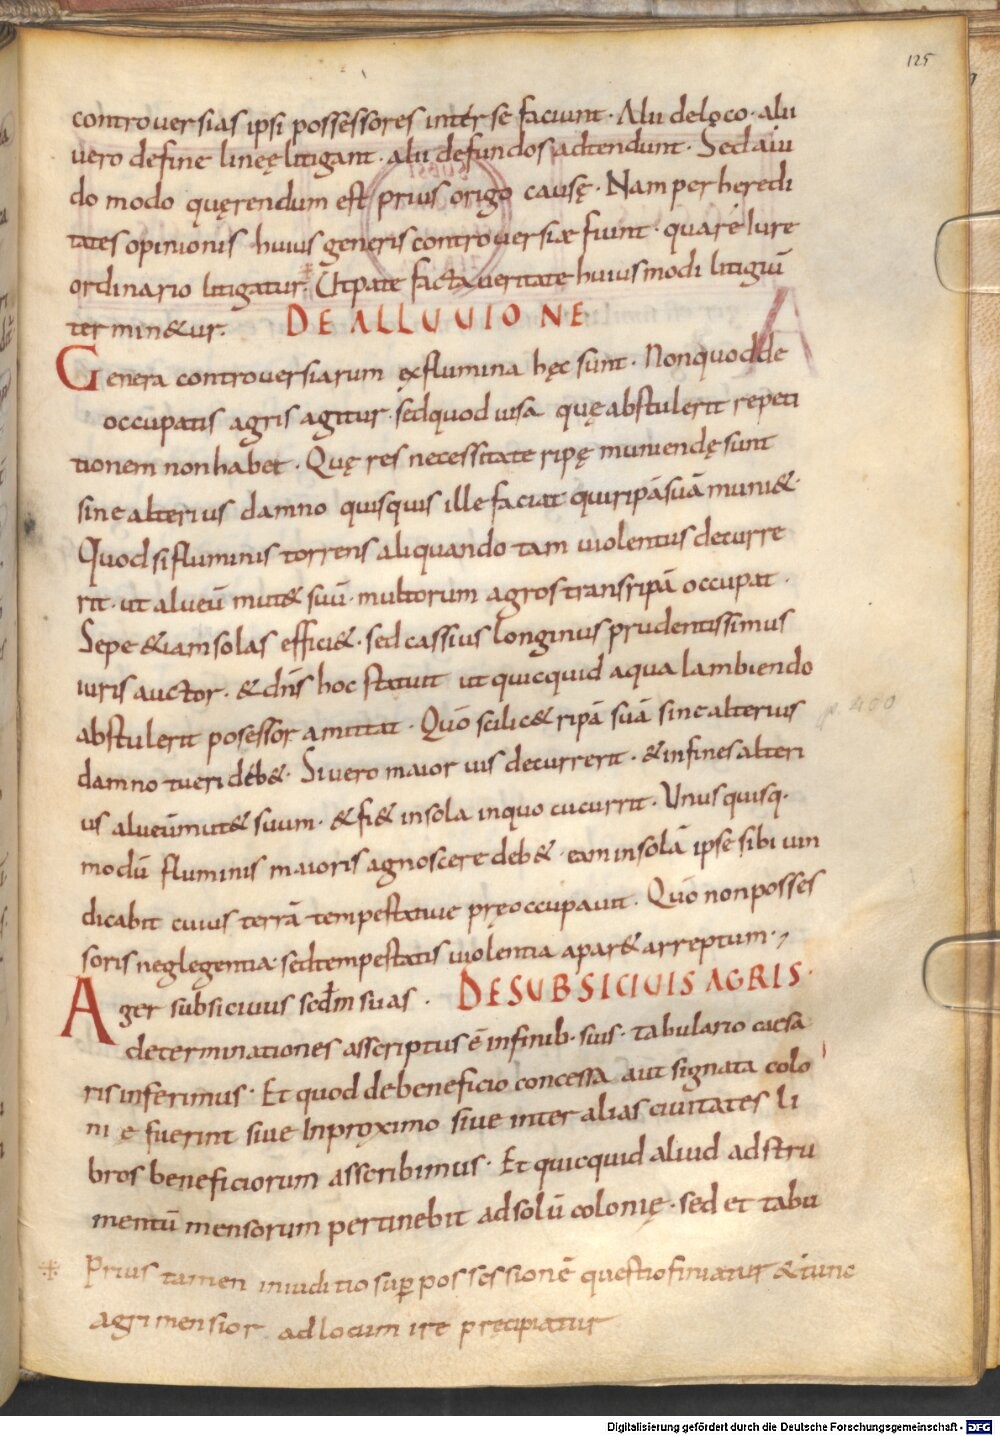 125
controuersias ipsi possessores inter se faciunt · Alii de lọco · alii
uero de fine lineę litigant · alii de fundos adtendunt · Sed aiu
do modo quęrendum est prius origo causę · Nam per heredi
tates opinionis huius generis controuersiæ fiunt · quare iure
ordinario litigatur · Ut pate facta ueritate huiusmodi litigiū
termin&ur · DE ALLUUIONE
Genera controuersiarum ęx flumina hęc sunt · Non quod de
occupatis agris agitur · sed quod uisa quę abstulerit repeti
tionem non habet · Quę res necessitate ripę muniendę sunt
sine alterius damno quisquis ille faciat qui ripā suā muni& ·
Quod si fluminis torrens aliquando tam uiolentus decurre
rit · ut alueū mut& suū · multorum agros trans ripā occupat ·
Sepe &iam solas effici& · sed cassius longinus prudentissimus
iuris auctor · & dn̄s hoc statuit ut quicquid aqua lambiendo
abstulerit posessor amittat · Quō scilic& ripā suā sine alterius
damno tueri deb& · Si uero maior uis decurrerit · & in fines alteri
us alueū mut& suum · & fi& insola in quo cucurrit · Unus quisq ·
modū fluminis maioris agnoscere deb& · ex in insolā ipse sibi uin
dicabit cuius terrā tempestatiue pręoccupauit · Quō non posses
soris neglegentia · sed tempestatis uiolentia apar& arreptum · ,
Ager subsiciuus scd̄m suas · DE SUBSICIUIS AGRIS ·
determinationes asscriptus ē in finib · suis · tabulario caesa
ris inferimus · Et quod de beneficio concessa aut signata colo
ni ę fuerint siue In proximo siue inter alias ciuitates li
bros beneficiorum asscribimus · Et quicquid aliud adstru
mentū mensorum pertinebit ad solū colonię · sed et tabu
Prius tamen inuiditio suꝑ possessionē questio finiatur & tunc
agrimensior ad locum ire pręcipiatur
p. 400
Digitalisierung gefördert durch die Deutsche Forschungsgemeinschaft - DFG